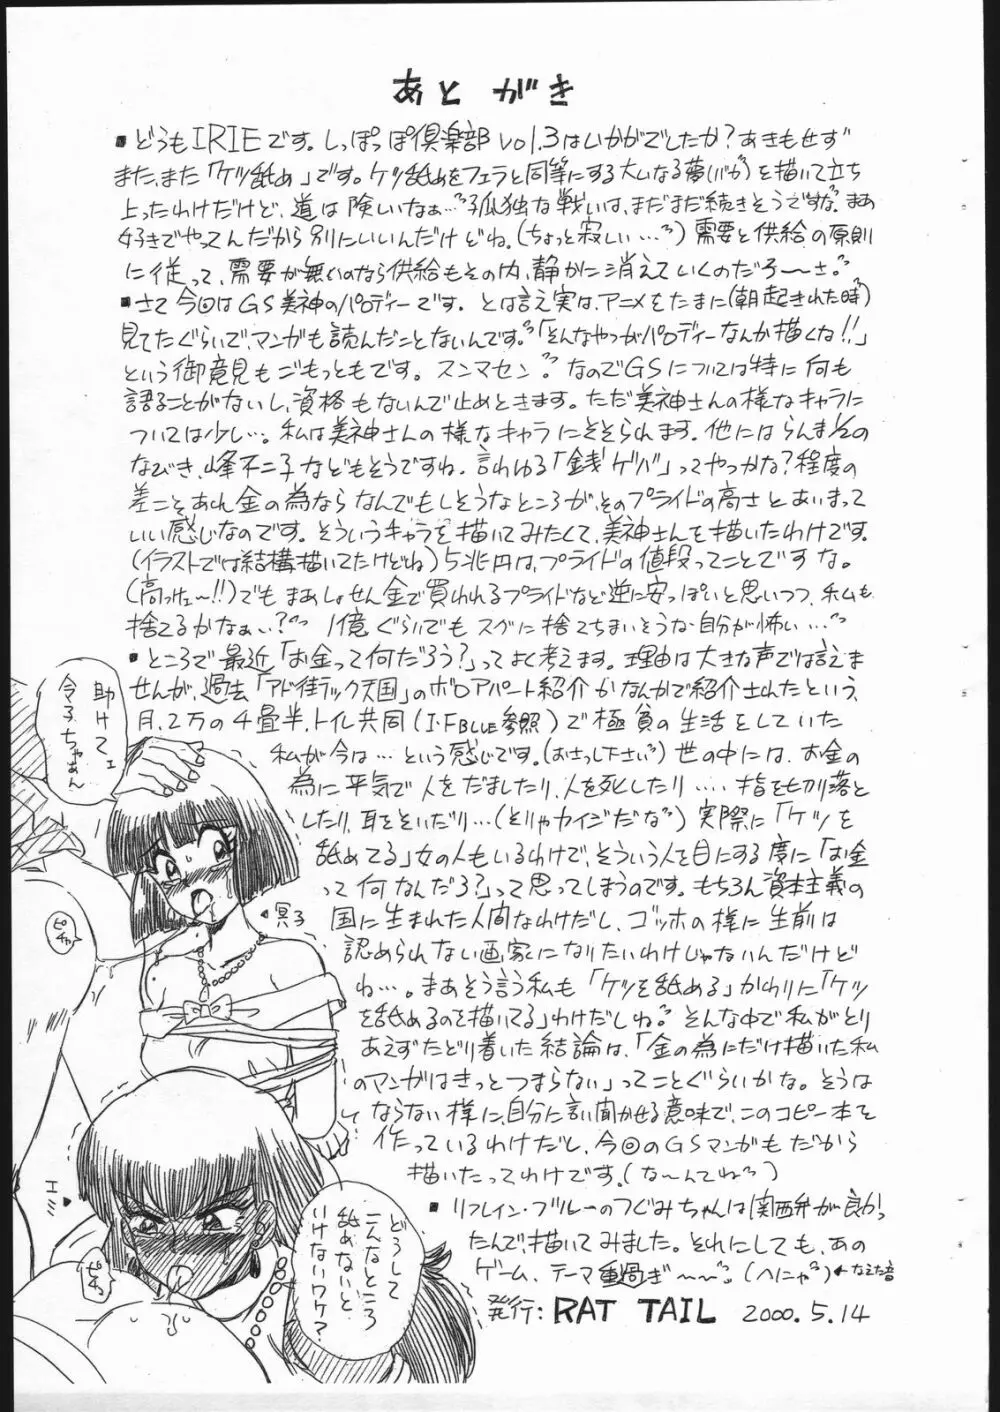 あとがき
▪どうもIRIEです。しっぽっぽ倶楽部vol.3はいかがでしたか?あきもせず
また、また「ケツ舐め」です。ケツ舐めをフェラと同等にする大いなる夢(バカ)を描いて立ち
上ったわけだけど、道は険しいなぁ…孤独な戦いは、まだまだ続きそうですな。まあ
好きでやってんだから別にいいんだけどね。(ちょっと寂しい…)需要と供給の原則
に従って、需要が無いのなら供給もその内、静かに消えていくのだろ〜さ。
▪さて今回はGS美神のパロディーです。とは言え実は、アニメをたまに(朝起きれた時)
見てたぐらいで、マンガも読んだことないんです。「そんなやつがパロディーなんか描くね!!」
という御意見もごもっともです。スンマセン。なのでGSについては特に何も
語ることがないし、資格もないんで止めときます。ただ美神さんの様なキャラに
ついては少し…。私は美神さんの様なキャラにそそられます。他にはらんま½の
なびき、峰不二子などもそうですね。言わゆる「銭ゲバ」ってやつかな?程度の
差こそあれ金の為ならなんでもしそうなところが、そのプライドの高さとあいまって
いい感じなのです。そういうキャラを描いてみたくて、美神さんを描いたわけです。
(イラストでは結構描いてたけどね)5兆円は、プライドの値段ってことですな。
(高っけェ〜!!)でもまあしょせん金で買われるプライドなど逆に安っぽいと思いつつ、私も
捨てるかなぁ…?1億ぐらいでもスグに捨てちまいそうな自分が怖い…
▪ところで最近「お金って何だろう?」ってよく考えます。理由は大きな声では言えま
せんが、過去「アド街ック天国」のボロアパート紹介かなんかで紹介されたという、
月、2万の4畳半、トイレ共同(I・F BLUE参照)で極貧の生活をしていた
私が今は…という感じです。(おさっし下さい)世の中には、お金の
為に平気で人をだましたり、人を死したり‥‥指を切り落と
したり、耳をそいだり…(そりゃカイジだな)実際に「ケツを
舐めてる」女の人もいるわけで、そういう人を目にする度に「お金
って何なんだろ?」って思ってしまうのです。もちろん資本主義の
国に生まれた人間なわけだし、ゴッホの様に生前は
認められない画家になりたいわけじゃないんだけど
ね…。まあそう言う私も「ケツを舐める」かわりに「ケツ
を舐めるのを描いてる」わけだしね。そんな中で私がとり
あえずたどり着いた結論は、「金の為にだけ描いた私
のマンガはきっとつまらない」ってことぐらいかな。そうは
ならない様に、自分に言い聞かせる意味で、このコピー本を
作っているわけだし、今回のGSマンガもだから
描いたってわけです。(な〜んてね)
▪リフレイン・ブルーのつぐみちゃんは関西弁が良かっ
たんで、描いてみました。それにしても、あの
ゲーム、テーマ重過ぎ〜〜。(へにゃ)←なえた音
発行:RAT TAIL 2000.5.14
助けてェ
令子ちゃあん
ピチャ
冥子
エミ
どうして
こんなところ
舐めないと
いけないワケ?